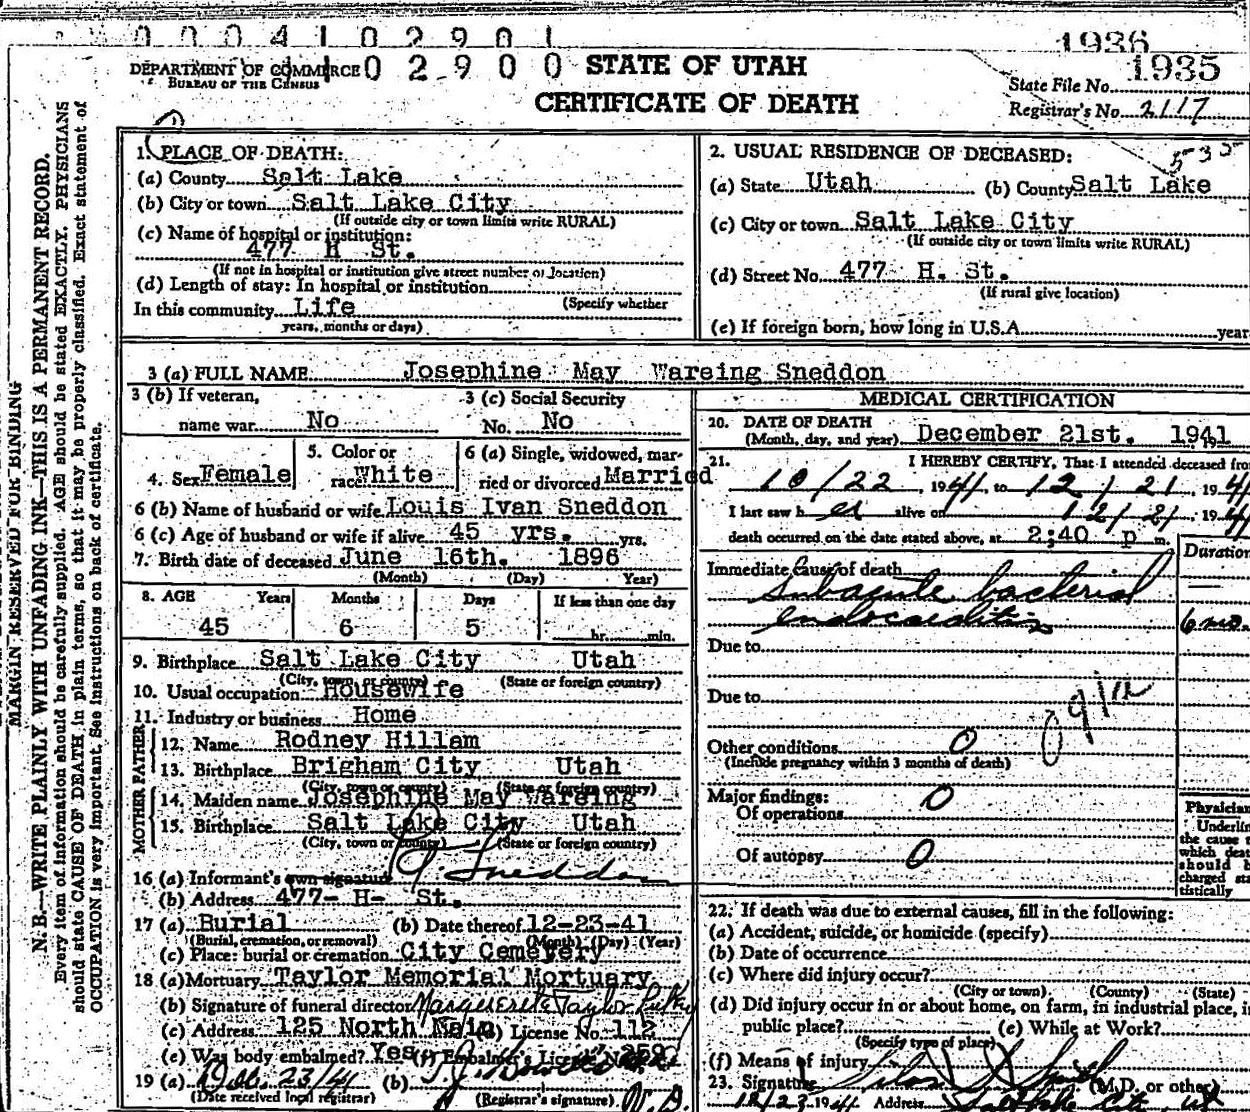 0 0 0 4 1 0 2 9 0 1
1936
DEPARTMENT OF COMMERCE 1 0 2 9 0 0 STATE OF UTAH
BUREAU OF THE CENSUS
CERTIFICATE OF DEATH
State File No. 1935
Registrar's No. 2117
MARGIN RESERVED FOR BINDING
N.B.—WRITE PLAINLY WITH UNFADING INK—THIS IS A PERMANENT RECORD.
Every item of information should be carefully supplied. AGE should be stated EXACTLY. PHYSICIANS
should state CAUSE OF DEATH in plain terms, so that it may be properly classified. Exact statement of
OCCUPATION is very important. See instructions on back of certificate.
1. PLACE OF DEATH:
(a) County Salt Lake
(b) City or town Salt Lake City
(If outside city or town limits write RURAL)
(c) Name of hospital or institution:
477 H St.
(If not in hospital or institution give street number or location)
(d) Length of stay: In hospital or institution
(Specify whether
In this community Life
years, months or days)
2. USUAL RESIDENCE OF DECEASED:
535
(a) State Utah (b) County Salt Lake
(c) City or town Salt Lake City
(If outside city or town limits write RURAL)
(d) Street No. 477 H. St.
(If rural give location)
(e) If foreign born, how long in U.S.A. year
3 (a) FULL NAME Josephine May Wareing Sneddon
3 (b) If veteran, name war No
3 (c) Social Security No. No
4. Sex Female
5. Color or race White
6 (a) Single, widowed, married or divorced Married
6 (b) Name of husband or wife Louis Ivan Sneddon
6 (c) Age of husband or wife if alive 45 yrs. yrs.
7. Birth date of deceased June 16th. 1896
(Month) (Day) Year)
8. AGE Years Months Days If less than one day
45 6 5 hr. min.
9. Birthplace Salt Lake City Utah
(City, town, or county) (State or foreign country)
10. Usual occupation Housewife
11. Industry or business Home
FATHER
12. Name Rodney Hillam
13. Birthplace Brigham City Utah
(City, town or county) (State or foreign country)
MOTHER
14. Maiden name Josephine May Wareing
15. Birthplace Salt Lake City Utah
(City, town or county) (State or foreign country)
16 (a) Informant's own signature Sneddon
(b) Address 477- H- St.
17 (a) Burial (b) Date thereof 12-23-41
(Burial, cremation, or removal) (Month) (Day) (Year)
(c) Place: burial or cremation City Cemetery
18 (a) Mortuary Taylor Memorial Mortuary
(b) Signature of funeral director Marguerite Taylor
(c) Address 125 North Main (d) License No. 112
(e) Was body embalmed? Yes (f) Embalmer's License No.
19 (a) Dec. 23/41 (b)
(Date received local registrar) (Registrar's signature)
MEDICAL CERTIFICATION
20. DATE OF DEATH
(Month, day, and year) December 21st. 1941
21. I HEREBY CERTIFY, That I attended deceased from
10/22, 1941, to 12/21, 194
I last saw h er alive on 12/21, 194
death occurred on the date stated above, at 2:40 p m.
Duration
Immediate cause of death
subacute bacterial
endocarditis 6 mo.
Due to
Due to
Other conditions 0
(Include pregnancy within 3 months of death)
Major findings:
Of operations 0
Of autopsy 0
Physician
Underlin
the cause
which deat
should b
charged sta
tistically
22. If death was due to external causes, fill in the following:
(a) Accident, suicide, or homicide (specify)
(b) Date of occurrence
(c) Where did injury occur?
(City or town) (County) (State)
(d) Did injury occur in or about home, on farm, in industrial place, i
public place? (e) While at Work?
(Specify type of place)
(f) Means of injury
23. Signature Silas S. Smith (M.D. or other)
12/23 1941 Address Salt Lake City Ut